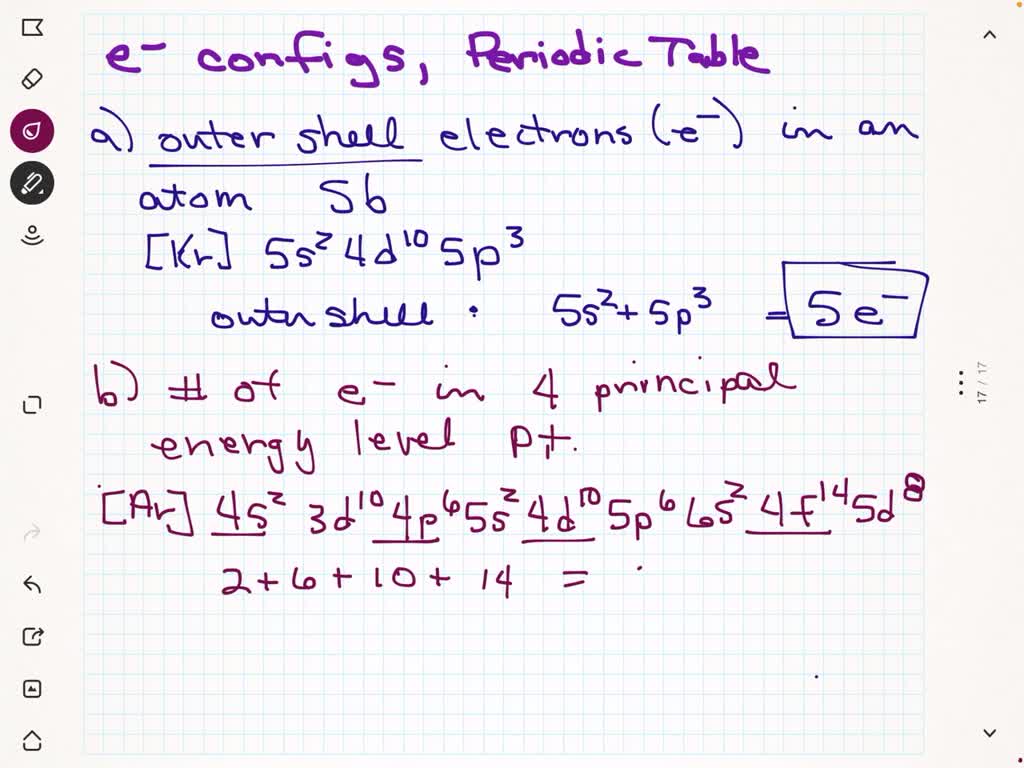 e⁻ configs, Periodic Table
a) outer shell electrons (e⁻) in an
atom Sb
[Kr] 5s² 4d¹⁰ 5p³
outer shell : 5s² + 5p³ = 5e⁻
b) # of e⁻ in 4 principal
energy level Pt.
[Ar] 4s² 3d¹⁰ 4p⁶ 5s² 4d¹⁰ 5p⁶ 6s² 4f¹⁴ 5d⁸
2 + 6 + 10 + 14 =
17 / 17